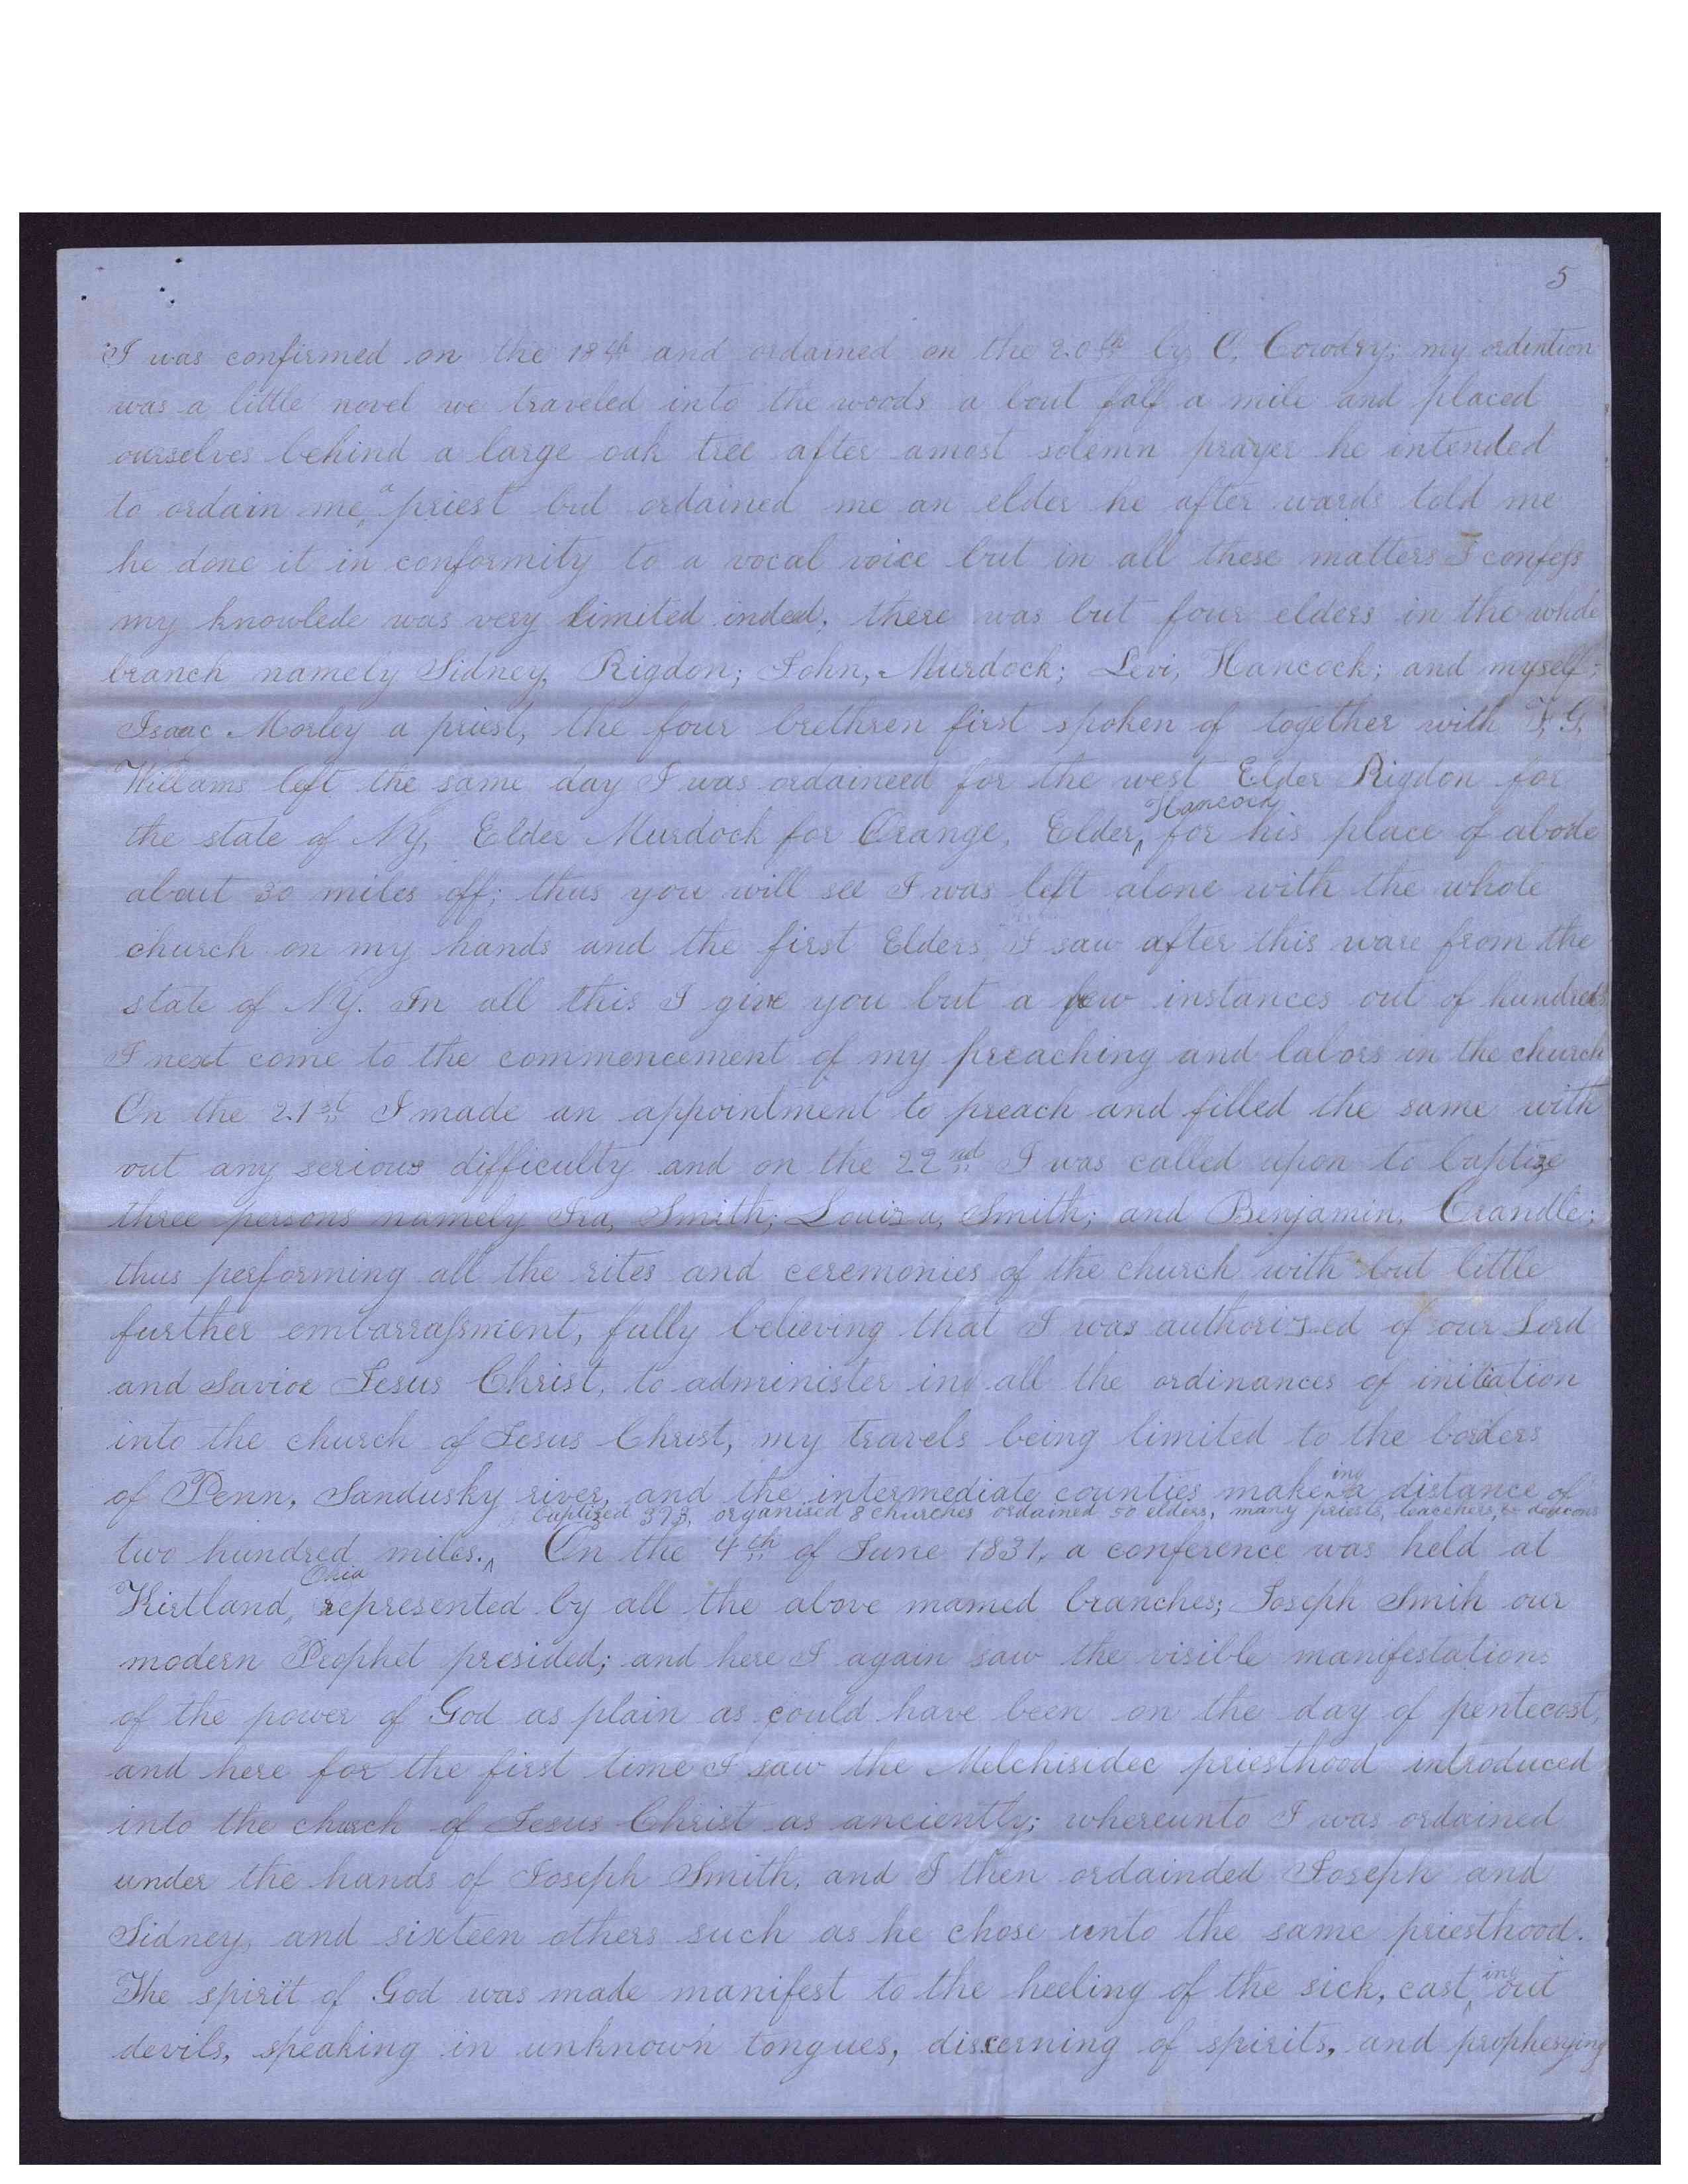 5
I was confirmed on the 18th and ordained on the 20th by O, Cowdry; my ordintion
was a little novel we traveled into the woods a bout half a mile and placed
ourselves behind a large oak tree after amost solemn prayer he intended
a
to ordain me priest but ordained me an elder he after wards told me
he done it in conformity to a vocal voice but in all these matters I confess
my knowlede was very limited indeed; there was but four elders in the whole
branch namely Sidney, Rigdon; John, Murdock; Levi, Hancock; and myself;
Isaac Morley a priest, the four brethren first spoken of together with F, G,
Willams left the same day I was ordaineed for the west Elder Rigdon for
Hancock
the state of NY, Elder Murdock for Orange, Elder, for his place of abode
about 30 miles off; thus you will see I was left alone with the whole
church on my hands and the first Elders I saw after this ware from the
state of NY. In all this I give you but a few instances out of hundreds
I next come to the commencement of my preaching and labors in the church
On the 21st I made an appointment to preach and filled the same with
out any serious difficulty and on the 22nd I was called upon to baptize
three persons namely Ira, Smith; Louiza, Smith; and Benjamin, Crandle;
thus performing all the rites and ceremonies of the church with but little
further embarrassment, fully believing that I was authorized of our Lord
and Savior Jesus Christ, to administer in all the ordinances of initiation
into the church of Jesus Christ, my travels being limited to the borders
ing
of Penn, Sandusky river, and the intermediate counties make a distance of
baptized 373, organised 8 churches ordained 50 elders, many priests, teacehers, & deacons
two hundred miles. On the 4th of June 1831, a conference was held at
Ohio
Kirtland, represented by all the above mamed branches; Joseph Smih our
modern Prophet presided; and here I again saw the visible manifestations
of the power of God as plain as could have been on the day of pentecost,
and here for the first time I saw the Melchisidec priesthood introduced
into the church of Jesus Christ as anciently; whereunto I was ordained
under the hands of Joseph Smith, and I then ordainded Joseph and
Sidney, and sixteen others such as he chose unto the same priesthood.
ing
The spirit of God was made manifest to the heeling of the sick, cast out
devils, speaking in unknown tongues, discerning of spirits, and prophesying